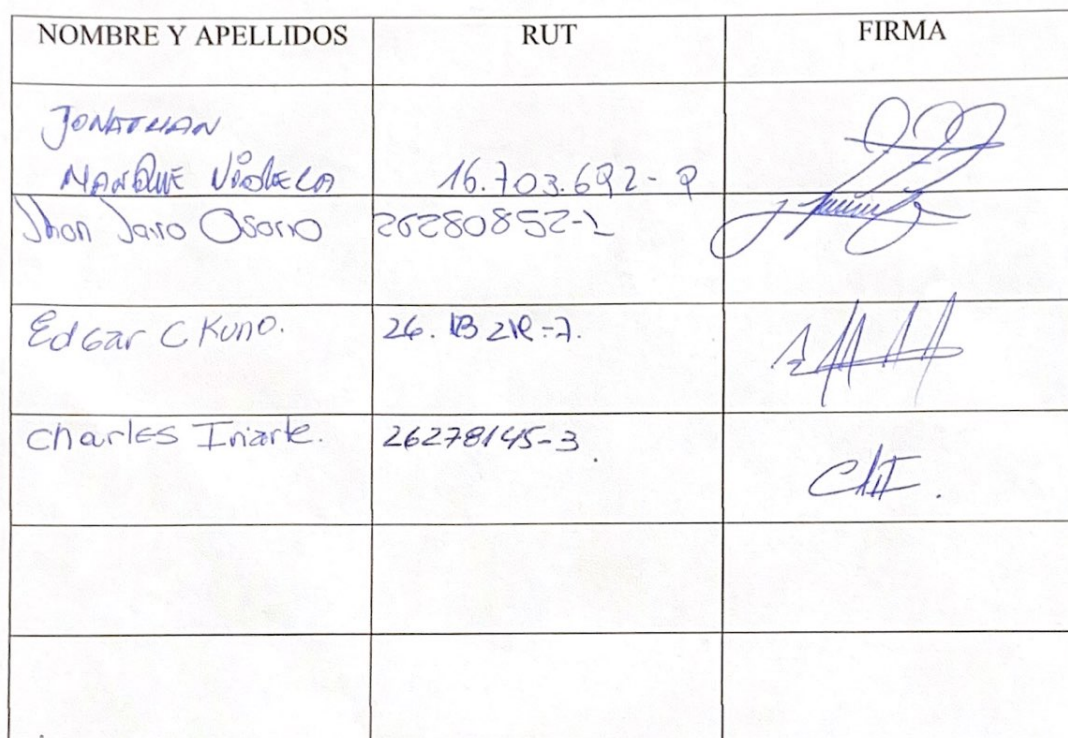 NOMBRE Y APELLIDOS RUT FIRMA
JONATHAN
MANQUE 16.703.692-9
Jhon Jairo Osorio 26280852-1
Edgar C Kuno. 26.
Charles Iriarte. 26278145-3